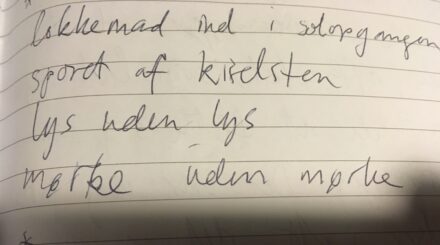 lokkemad ind i solopgangen
sporet af kiselsten
lys uden lys
mørke uden mørke